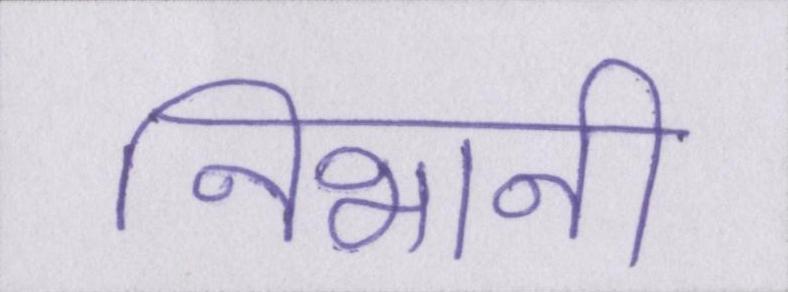 निभानी